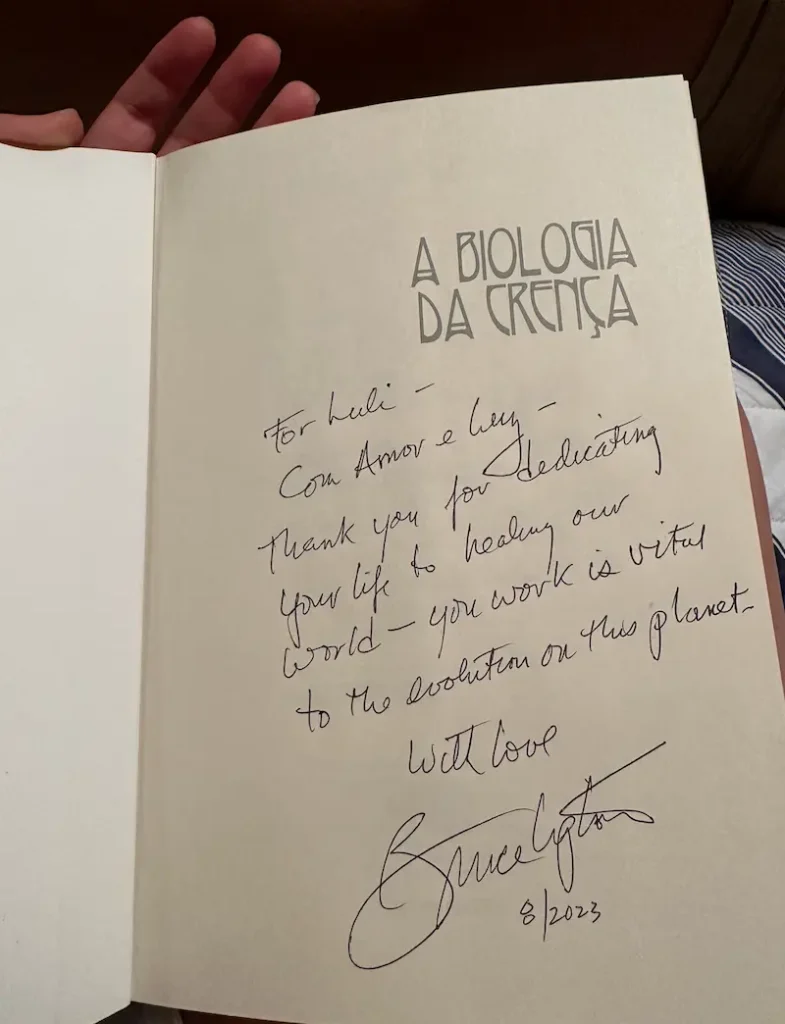 A BIOLOGIA
DA CRENÇA
For Luli -
Com Amor e Luz -
Thank you for dedicating
your life to healing our
world - you work is vital
to the evolution on this planet-
With Love
Bruce Lipton
8/2023